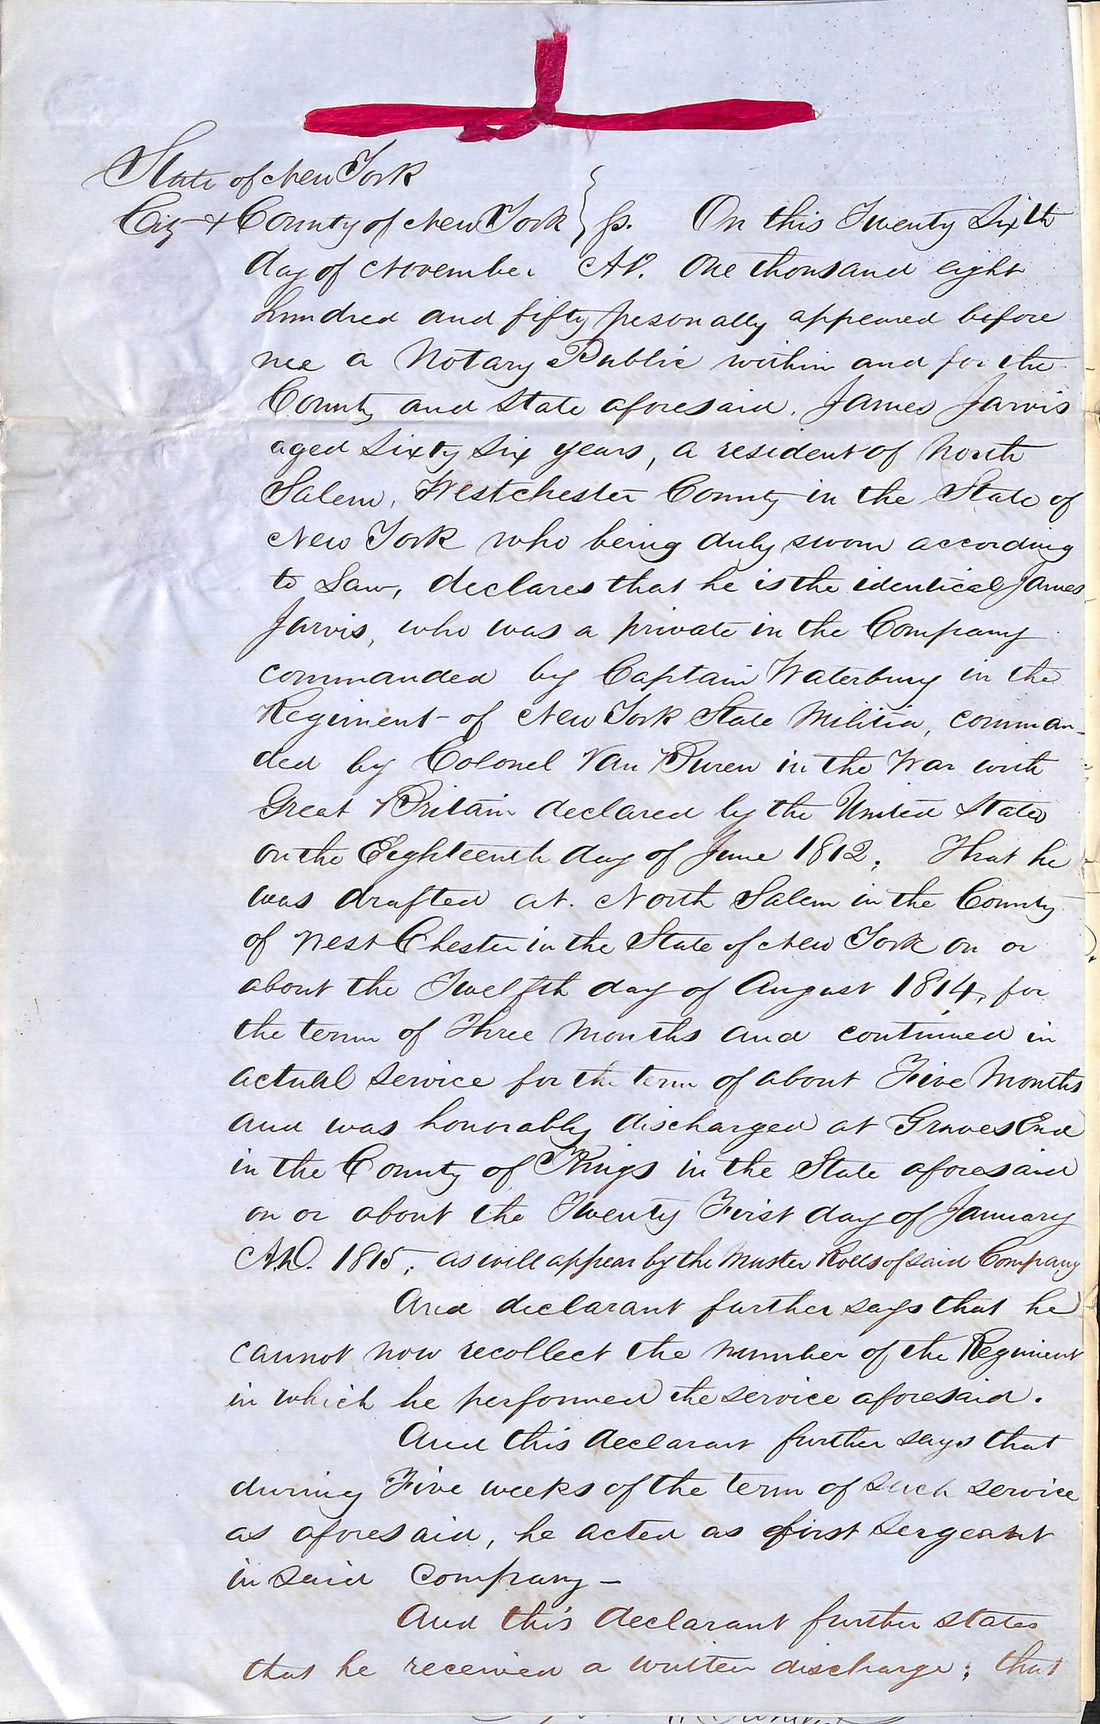 State of New York
City & County of New York } ss. On this Twenty Sixth
day of November A.D. One thousand eight
hundred and fifty pesonally appeared before
me a Notary Public within and for the
County and State aforesaid, James Jarvis
aged Sixty Six years, a resident of North
Salem, Westchester County in the State of
New York who being duly sworn according
to Law, declares that he is the identical James
Jarvis, who was a private in the Company
commanded by Captain Waterbury in the
Regiment of New York State Militia, comman-
ded by Colonel Van Buren in the War with
Great Britain declared by the United States
on the Eighteenth day of June 1812; That he
was drafted at North Salem in the County
of West Chester in the State of New York on or
about the Twelfth day of August 1814, for
the term of Three Months and continued in
actual Service for the term of about Five Months
and was honorably discharged at Graves End
in the County of Kings in the State aforesaid
on or about the Twenty First day of January
A.D. 1815, as will appear by the Muster Rolls of said Company
And declarant further says that he
cannot now recollect the number of the Regiment
in which he performed the service aforesaid.
And this declarant further says that
during Five weeks of the term of such service
as aforesaid, he acted as first Sergeant
in said Company —
And this declarant further states
that he received a written discharge; that